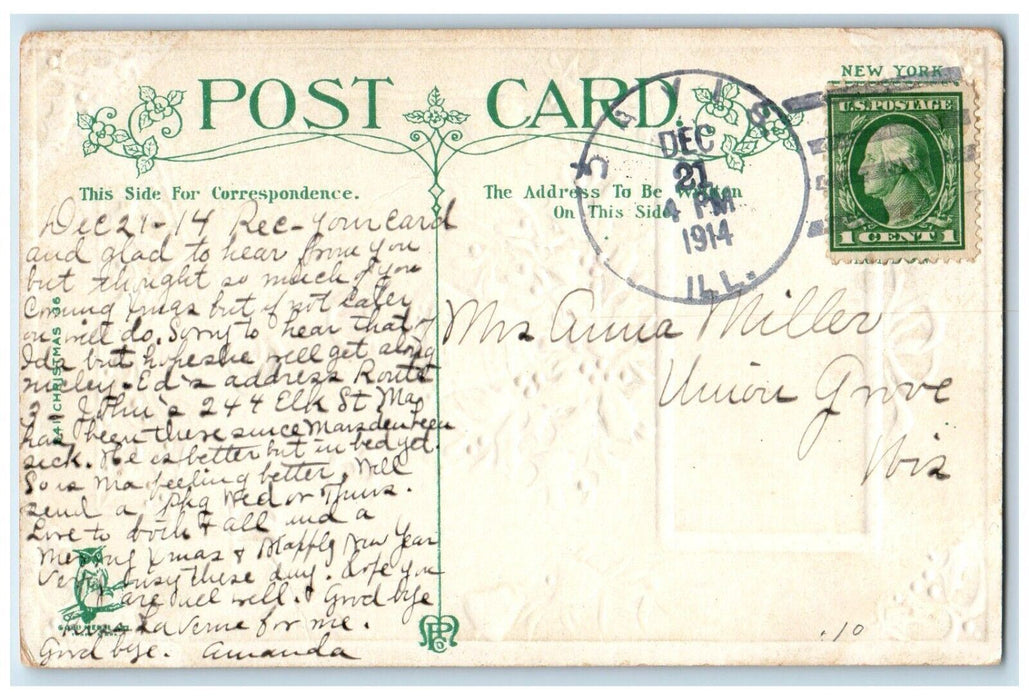 POST CARD
NEW YORK
U.S. POSTAGE
1 CENT 1
DEC
21
4 PM
1914
ILL.
This Side For Correspondence.
The Address To Be Written
On This Side
Dec 21-14 Rec- your card
and glad to hear from you
but thought so much of you
Coming but if not later
on will do. Sorry to hear that of
Ida but hope she will get along
nicely. Ed's address Route
3. John's 244 Elk St. Ma
has been there since Marsden been
sick. He is better but in bed yet.
So is Ma feeling better. Will
send a pkg Wed or Thurs.
Love to both & all and a
Merry Xmas & Happy New Year
Very busy these day. Hope you
are all well. Good bye
La Verne for me.
Good bye. Amanda
241 CHRISTMAS
Mrs Anna Miller
Union Grove
Wis
.10